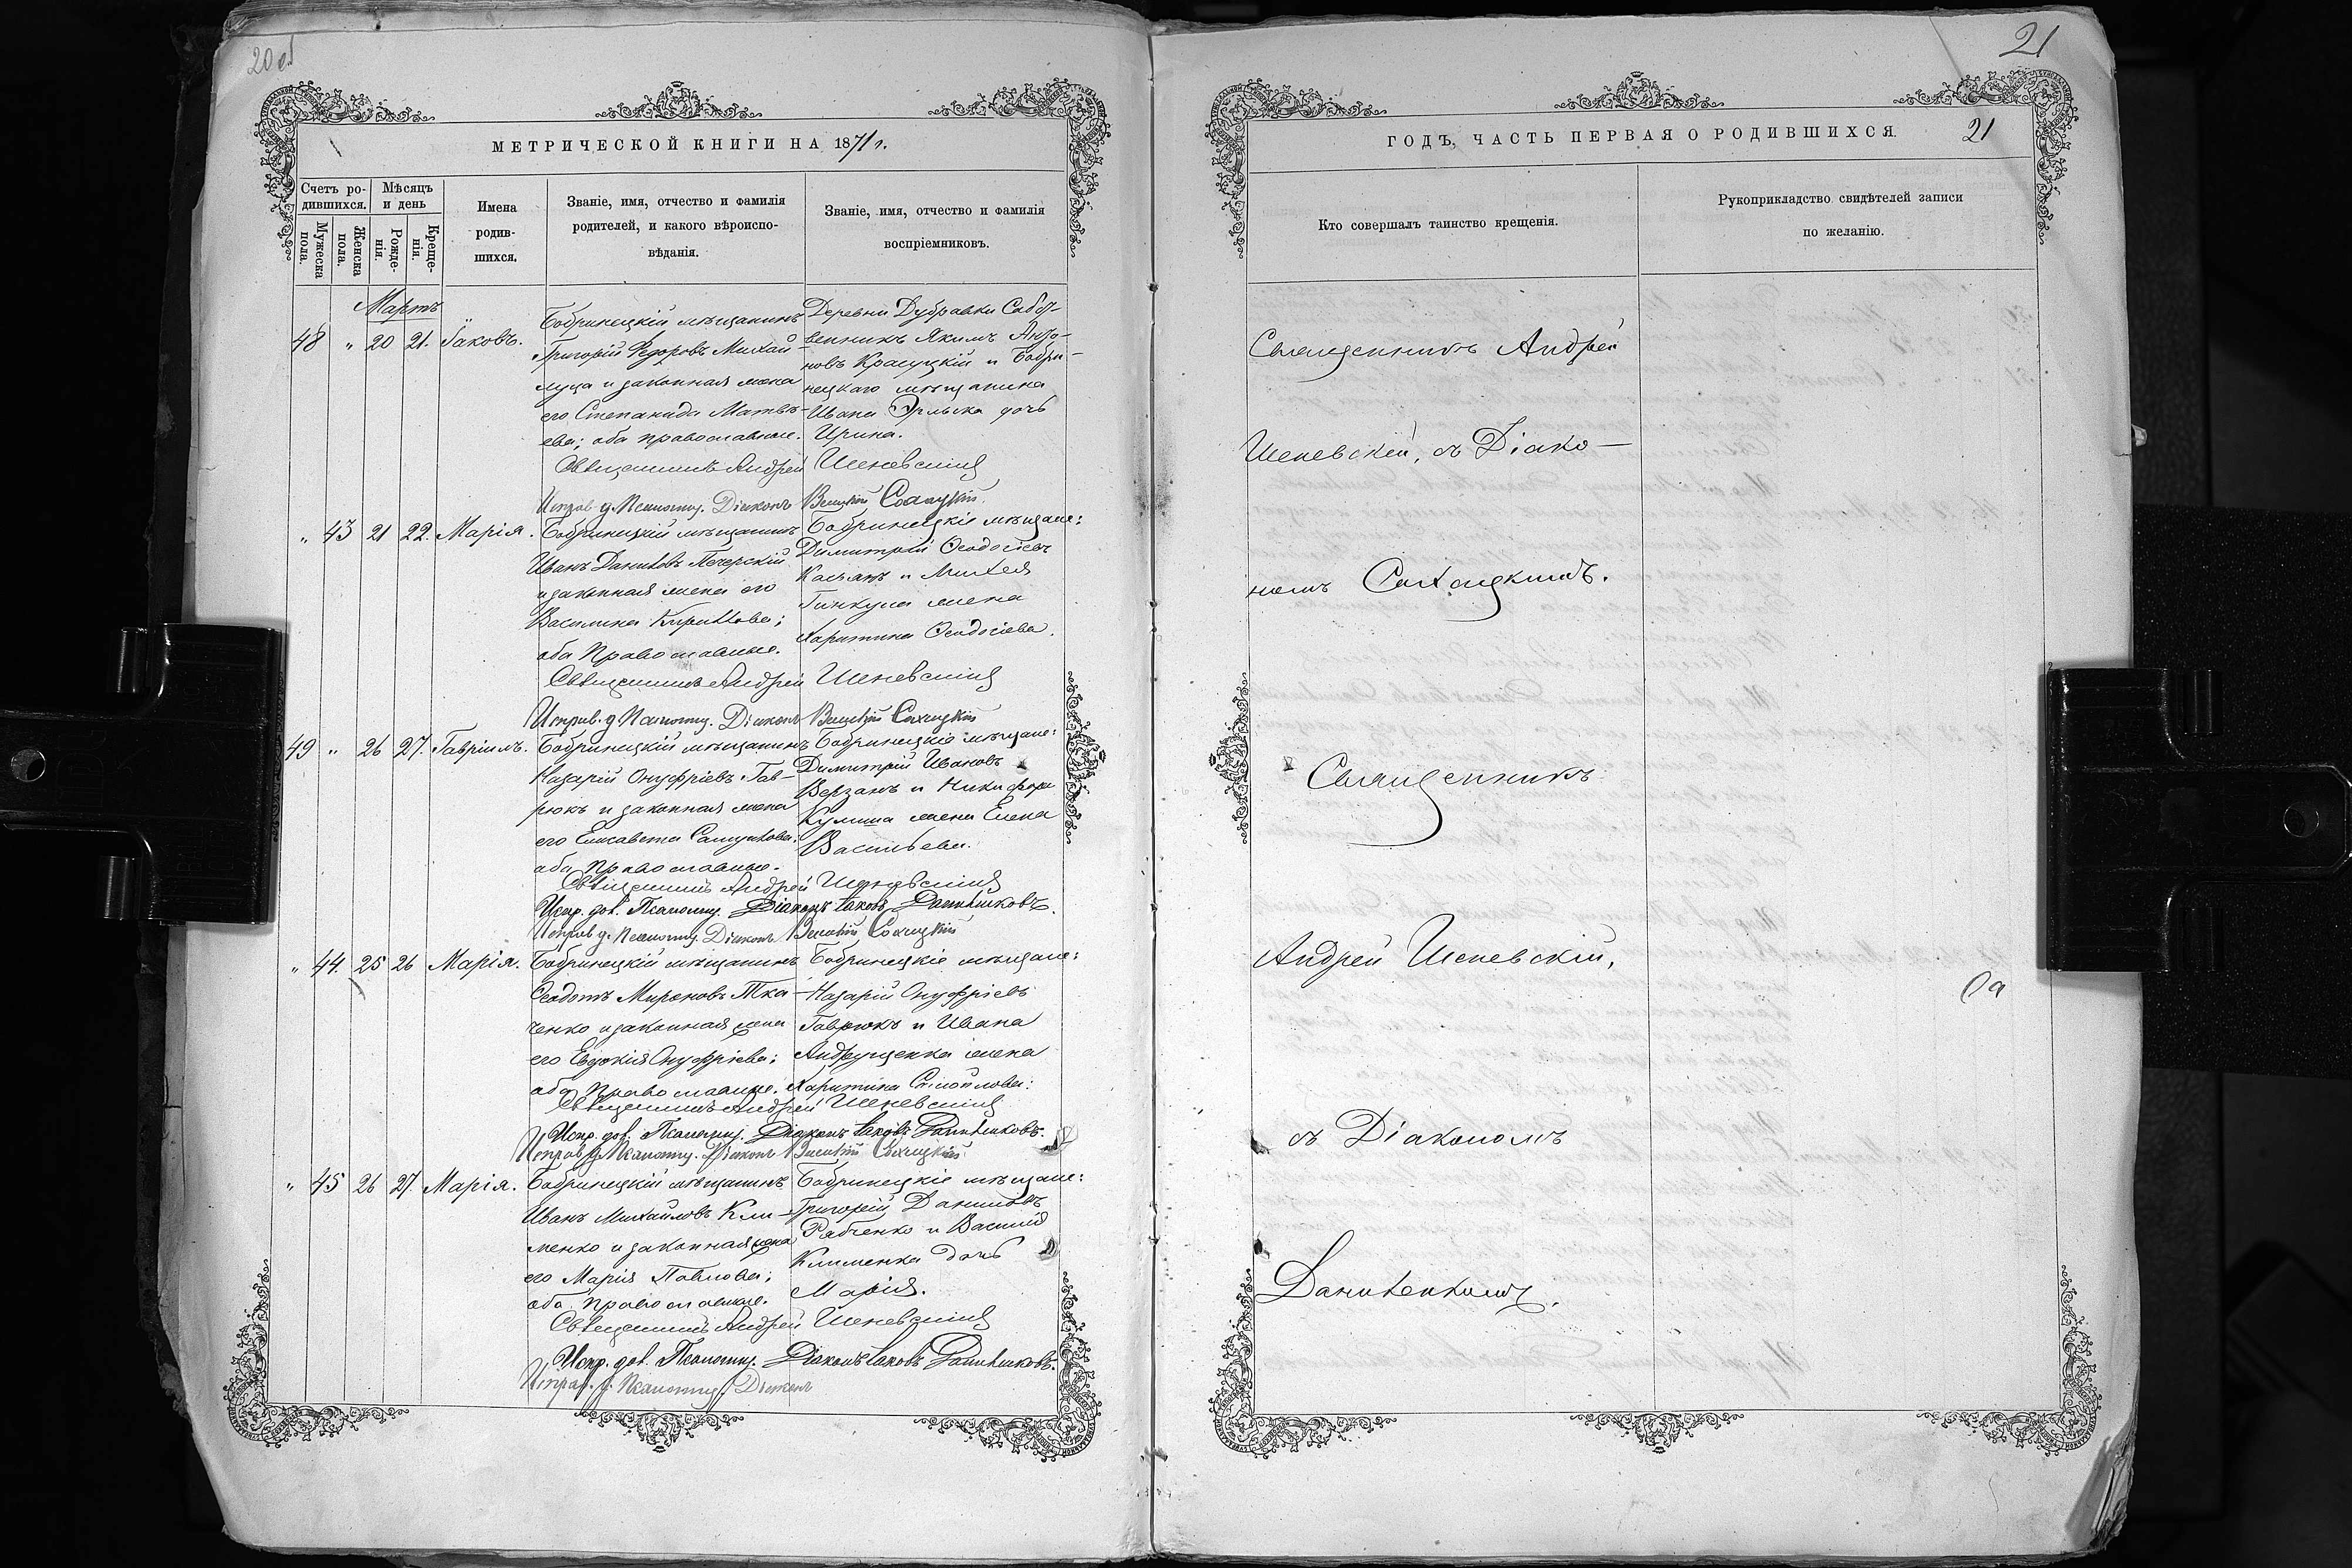 20 об
МЕТРИЧЕСКОЙ КНИГИ НА 1871 г.
Счетъ ро-
дившихся.
Мѣсяцъ
и день
Мужеска
пола.
Женска
пола.
Рожде-
нія.
Креще-
нія.
Имена
родив-
шихся.
Званіе, имя, отчество и фамилія
родителей, и какого вѣроиспо-
вѣданія.
Званіе, имя, отчество и фамилія
воспріемниковъ.
Мартъ
48 " 20 21. Іаковъ.
Бобринецкій мѣщанинъ
Григорій Федоровъ Михай-
луца и законная жена
его Степанида Матвѣ-
ева; оба православные.
Деревни Дубравки
венникъ Якимъ
новъ Красуцкій и Бобри-
нецкаго мѣщанина
Ивана дочь
Ирина.
Священникъ Андрей Шеневскій
Исправ. д. Псаломщ. Діаконъ
" 43 21 22. Марія.
Бобринецкій мѣщанинъ
Иванъ Даниловъ Печерскій
и законная жена его
Василина Кириллова;
оба Православные.
Бобринецкіе мѣщане:
Димитрій Ѳеодосіевъ
и Михея
жена
Харитина Ѳеодосіева.
Священникъ Андрей Шеневскій
Исправ. д. Псаломщ. Діаконъ
49 " 26 27. Гавріилъ.
Бобринецкій мѣщанинъ
Назарій Онуфріевъ Гав-
рюкъ и законная жена
его Елисавета Самуилова;
оба православные.
Бобринецкіе мѣщане:
Димитрій Ивановъ
Верзанъ и Никифора
Кулиша жена Елена
Васильева.
Священникъ Андрей Шеневскій
Испр. дол. Псаломщ. Діаконъ Іаковъ
Исправ. д. Псаломщ. Діаконъ
" 44. 25 26 Марія.
Бобринецкій мѣщанинъ
Ѳеодотъ Мироновъ Тка-
ченко и законная жена
его Евдокія Онуфріева;
оба православные.
Бобринецкіе мѣщане:
Назарій Онуфріевъ
Гаврюкъ и Ивана
Андрущенка жена
Харитина Самойлова:
Священникъ Андрей Шеневскій
Испр. дол. Псаломщ. Діаконъ Іаковъ
Исправ. д. Псаломщ. Діаконъ
" 45 26 27. Марія.
Бобринецкій мѣщанинъ
Иванъ Михайловъ Кли-
менко и законная жена
его Марія Павлова;
оба православные.
Бобринецкіе мѣщане:
Григорій Даниловъ
Рябченко и Василія
Клименка дочь
Марія.
Священникъ Андрей Шеневскій
Испр. дол. Псаломщ. Діаконъ Іаковъ
Исправ. д. Псаломщ. Діаконъ
21
ГОДЪ, ЧАСТЬ ПЕРВАЯ О РОДИВШИХСЯ.
21
Кто совершалъ таинство крещенія.
Рукоприкладство свидѣтелей записи
по желанію.
Священникъ Андрей
Шеневскій, съ Діако-
номъ
Священникъ
Андрей Шеневскій,
съ Діакономъ